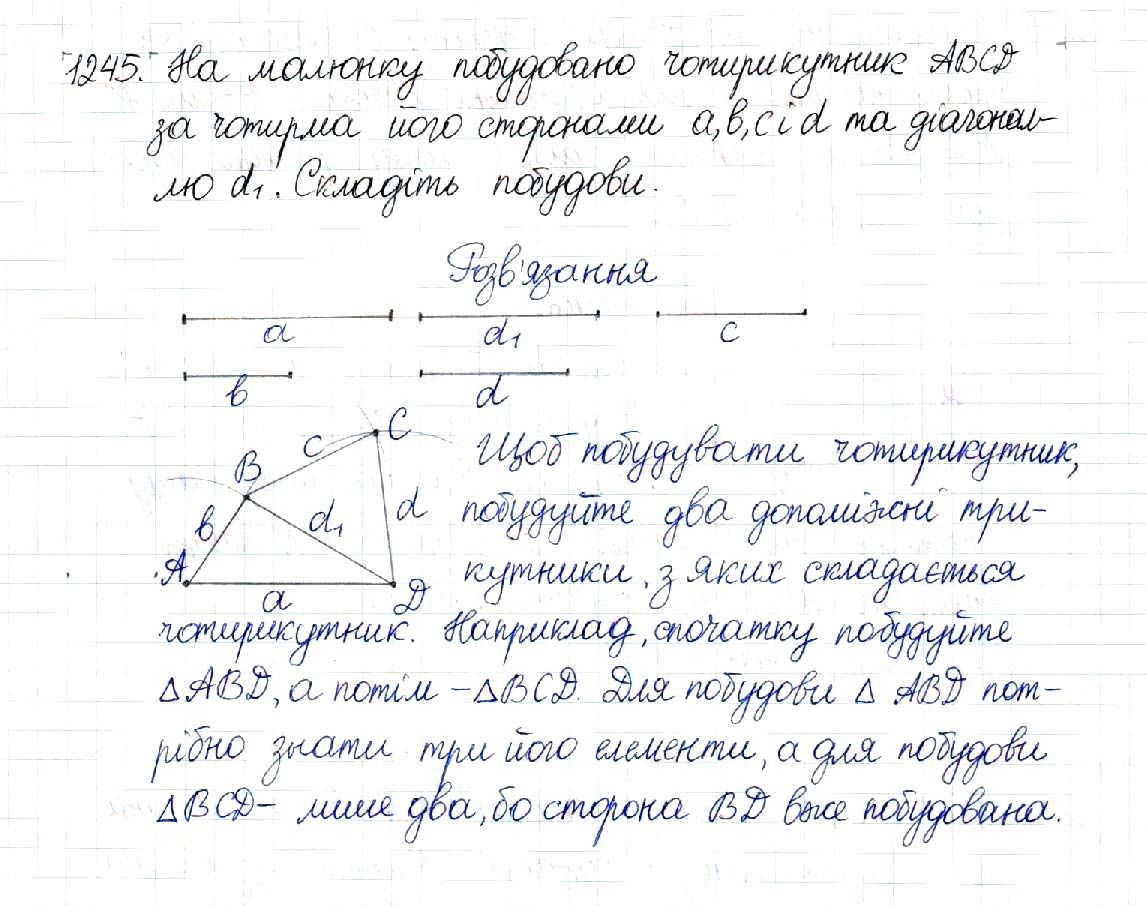 1245. На малюнку побудовано чотирикутник ABCD
за чотирма його сторонами a, b, c і d та діагонал-
лю d₁. Складіть побудови.
Розв'язання
a d₁ c
b d
C
c
B
b d₁ d
A
a D
Щоб побудувати чотирикутник,
побудуйте два допоміжні три-
кутники, з яких складається
чотирикутник. Наприклад, спочатку побудуйте
△ABD, а потім – △BCD. Для побудови △ ABD пот-
рібно знати три його елементи, а для побудови
△BCD – лише два, бо сторона BD вже побудована.